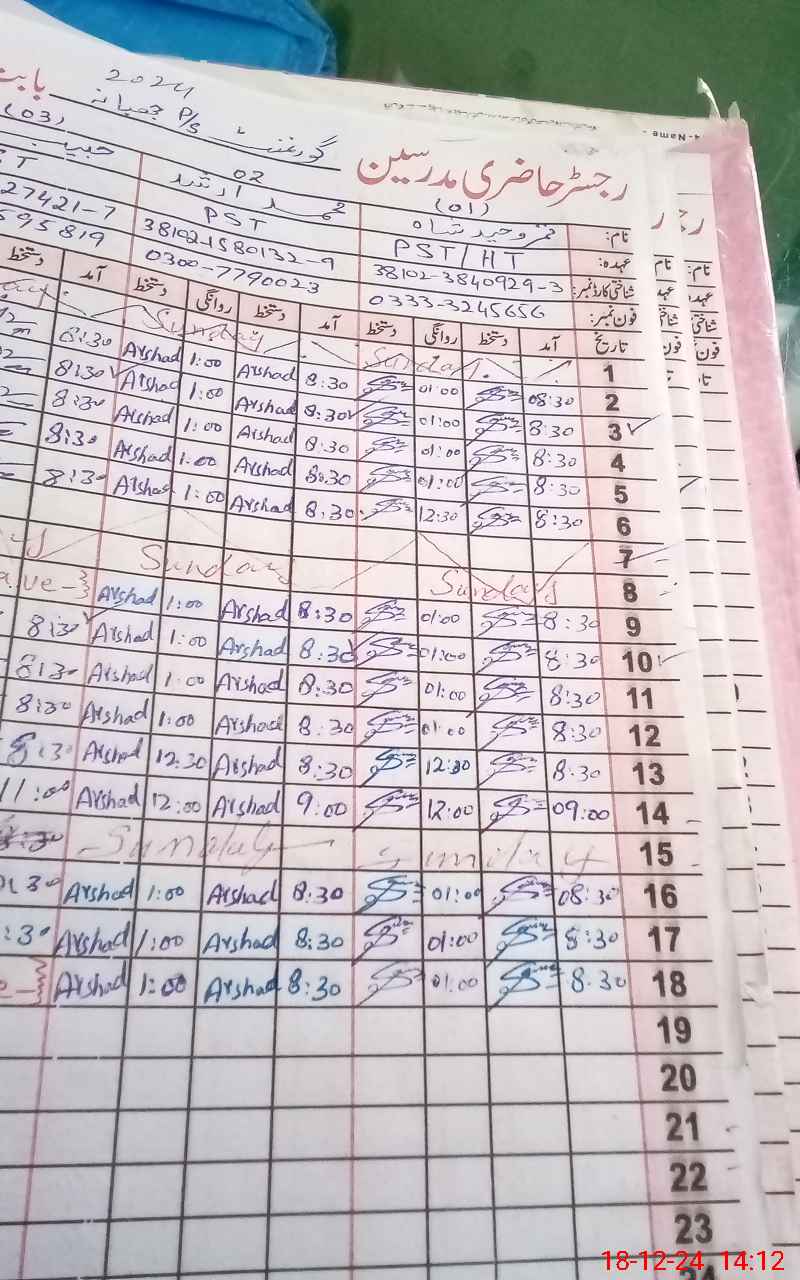 2024
گورنمنٹ P/S
رجسٹر حاضری مدرسین
(03) 02 (01)
نام: قمر وحید شاہ محمد ارشد حبیب
عہدہ: PST/HT PST
شناختی کارڈ نمبر: 38102-3840929-3 38102-1580132-9 27421-7
فون نمبر: 0333-3245656 0300-7790023 595819
تاریخ آمد دستخط روانگی دستخط آمد دستخط روانگی دستخط آمد دستخط
1 Sunday Sunday
2 08:30 01:00 8:30 Arshad 1:00 Arshad 8:30
3 8:30 01:00 8:30 Arshad 1:00 Arshad 8:30
4 8:30 01:00 8:30 Arshad 1:00 Arshad 8:30
5 8:30 01:00 8:30 Arshad 1:00 Arshad 8:30
6 8:30 12:30 8:30 Arshad 1:00 Arshad 8:30
7
8 Sunday Sunday
9 8:30 01:00 8:30 Arshad 1:00 Arshad
10 8:30 01:00 8:30 Arshad 1:00 Arshad 8:30
11 8:30 01:00 8:30 Arshad 1:00 Arshad 8:30
12 8:30 01:00 8:30 Arshad 1:00 Arshad 8:30
13 8:30 12:30 8:30 Arshad 12:30 Arshad 8:30
14 09:00 12:00 9:00 Arshad 12:00 Arshad 11:00
15 Sunday Sunday
16 08:30 01:00 8:30 Arshad 1:00 Arshad
17 8:30 01:00 8:30 Arshad 1:00 Arshad
18 8:30 01:00 8:30 Arshad 1:00 Arshad
19
20
21
22
23
18-12-24 14:12